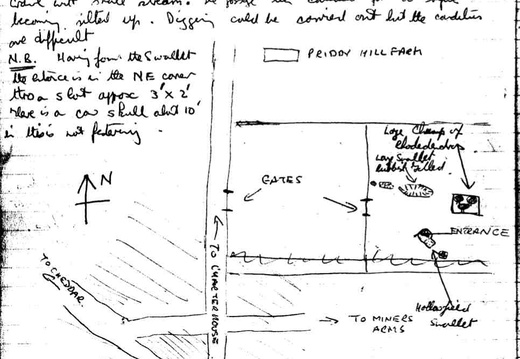 Crawl with small stream.
becoming silted up. Digging could be carried out but the conditions
are difficult
N.B. Having found the Swallet
the entrance is in the NE corner
thro a slot approx 3' x 2'
There is a cow skull about 10'
in this is not festering.
PRIDDY HILL FARM
Large Clump of
Rhododendrons
Large Swallet
rubbish filled.
N
GATES
ENTRANCE
TO CHEDDAR.
TO CHARTERHOUSE
TO MINERS
ARMS
Hollowfield
Swallet